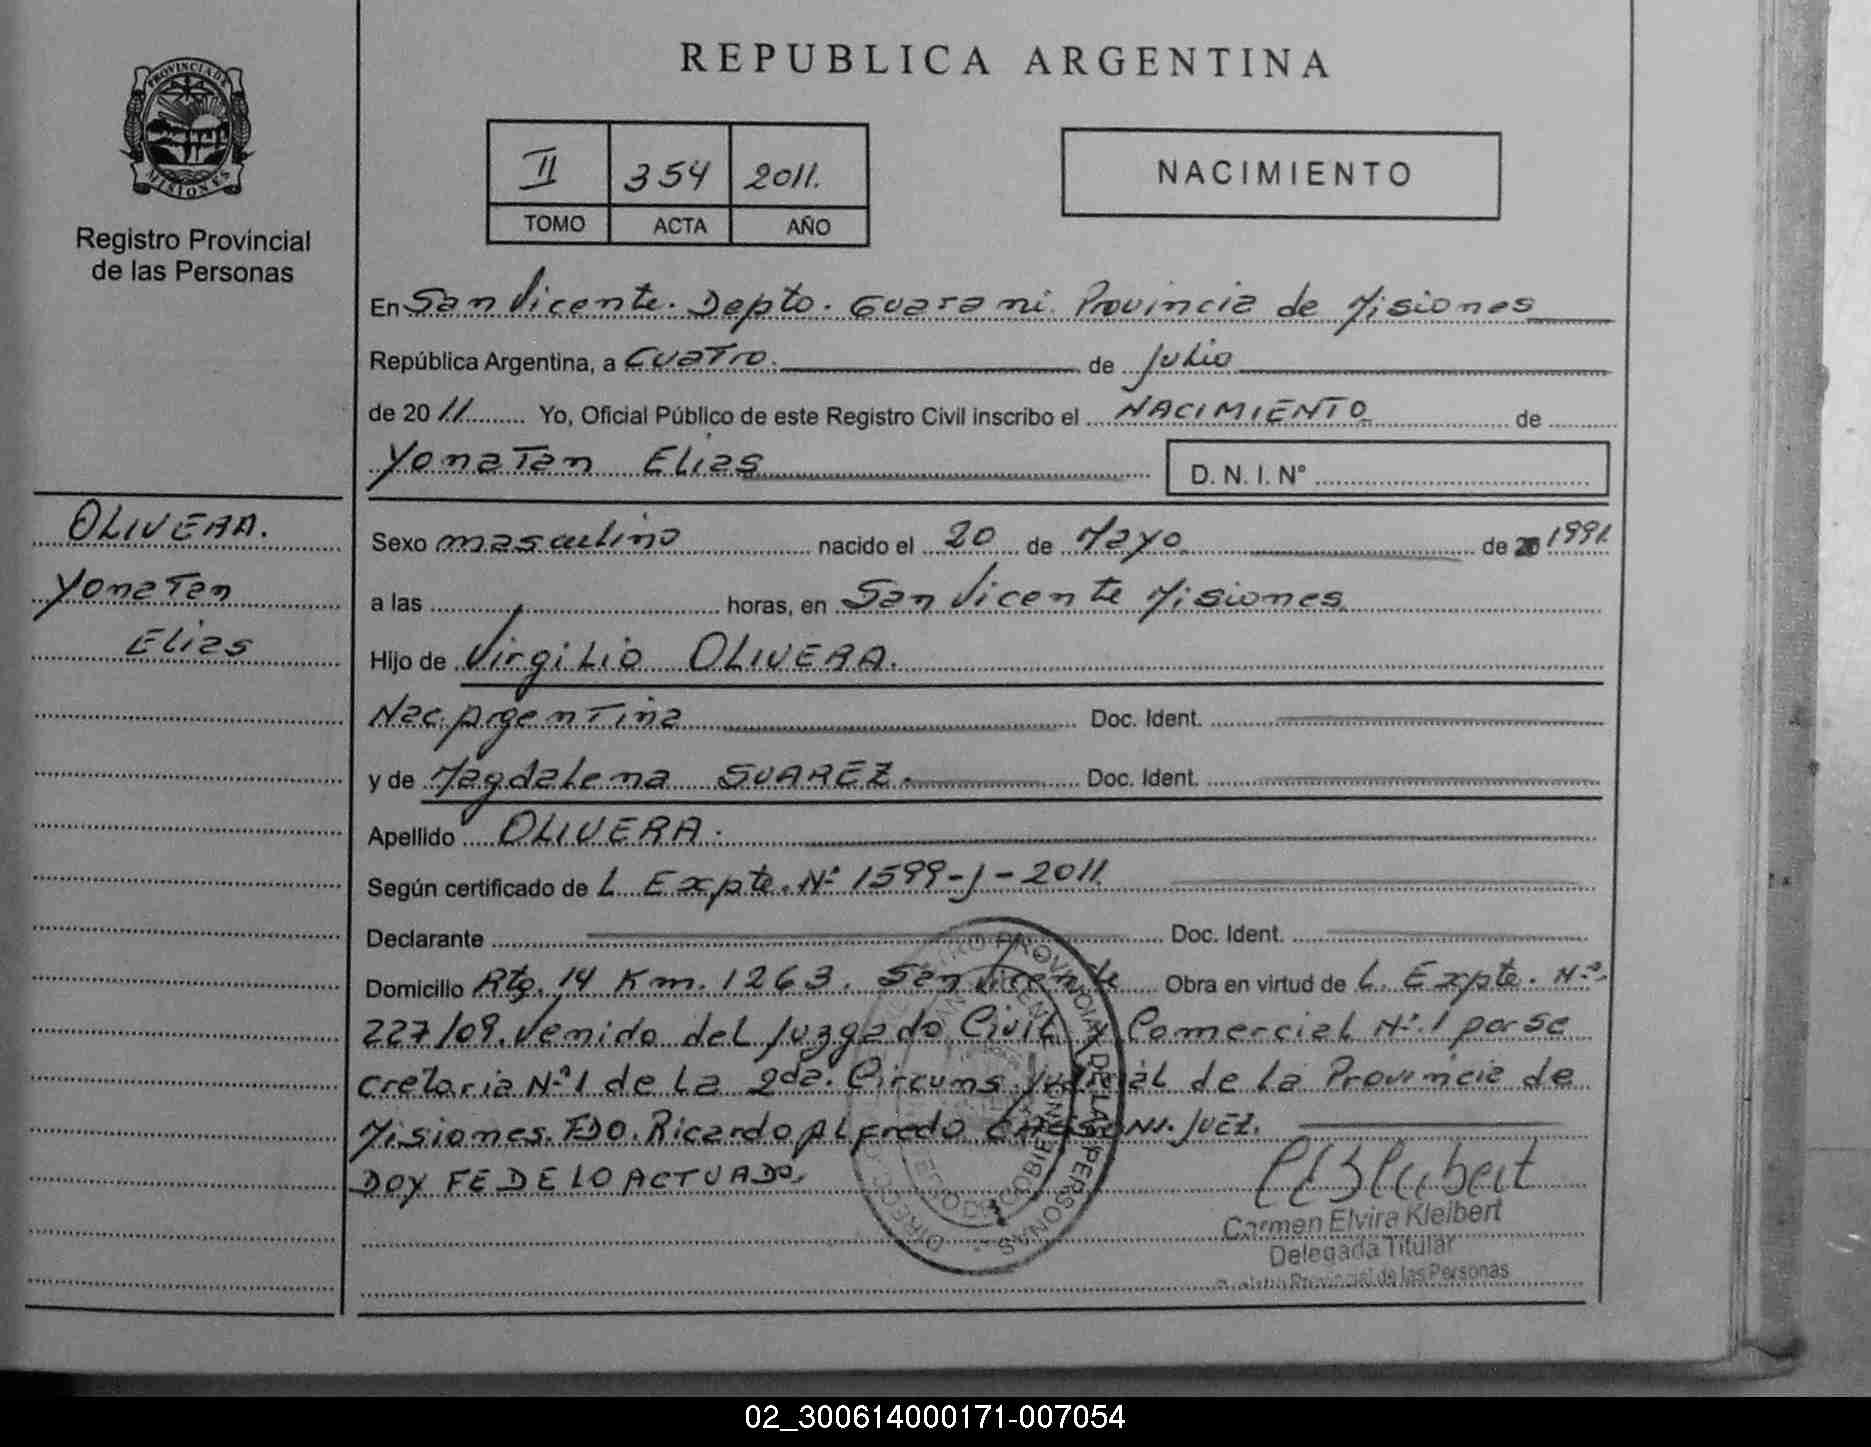 REPUBLICA ARGENTINA
PROVINCIA DE
MISIONES
Registro Provincial
de las Personas
II 354 2011.
TOMO ACTA AÑO
NACIMIENTO
En San Vicente. Depto. Guarani. Provincia de Misiones
República Argentina, a Cuatro. de Julio
de 20 11 Yo, Oficial Público de este Registro Civil inscribo el NACIMIENTO de
Yonatan Elias D. N. I. Nº
OLIVERA.
Yonatan
Elias
Sexo masculino nacido el 20 de Mayo de 1991.
a las horas, en San Vicente Misiones.
Hijo de Virgilio OLIVERA.
Nac. Argentina Doc. Ident.
y de Magdalena SUAREZ. Doc. Ident.
Apellido OLIVERA.
Según certificado de L Expte. Nº 1599-J-2011.
Declarante Doc. Ident.
Domicilio Rta. 14 Km. 1263. San Vicente Obra en virtud de L. Expte. Nº.
227/09. Venido del Juzgado Civil y Comercial Nº.1 por Se
cretaria Nº1 de la 2da. Circuns. Judicial de la Provincia de
Misiones. FDO. Ricardo Alfredo JUEZ.
DOY FE DE LO ACTUADO.
Carmen Elvira Kleibert
Delegada Titular
Provincial de las Personas
02_300614000171-007054